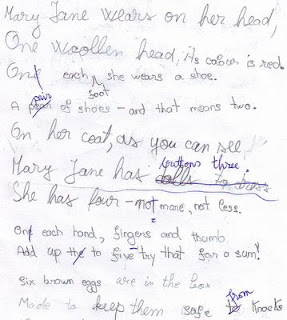 Mary Jane wears on her head,
One woollen head, its colour is red.
On each foot she wears a shoe.
A pair of shoes - and that means two.
On her coat, as you can see
Mary Jane has buttons three
She has four - not more, not less.
On each hand, fingers and thumb.
Add up to five - try that for a sum!
Six brown eggs are in the box
Made to keep them safe from knocks